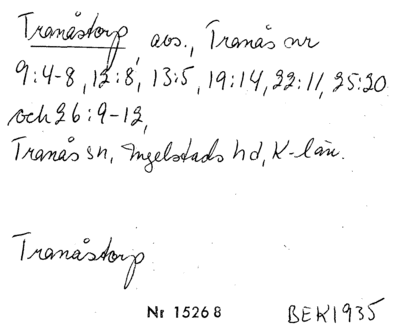 Tranåstorp, avs., Tranås nr
9:4-8, 12:8, 13:5, 19:14, 22:11, 25:20
och 26:9-12,
Tranås sn, Ingelstads hd, K-län.
Tranåstorp
Nr 15268 BEK1935